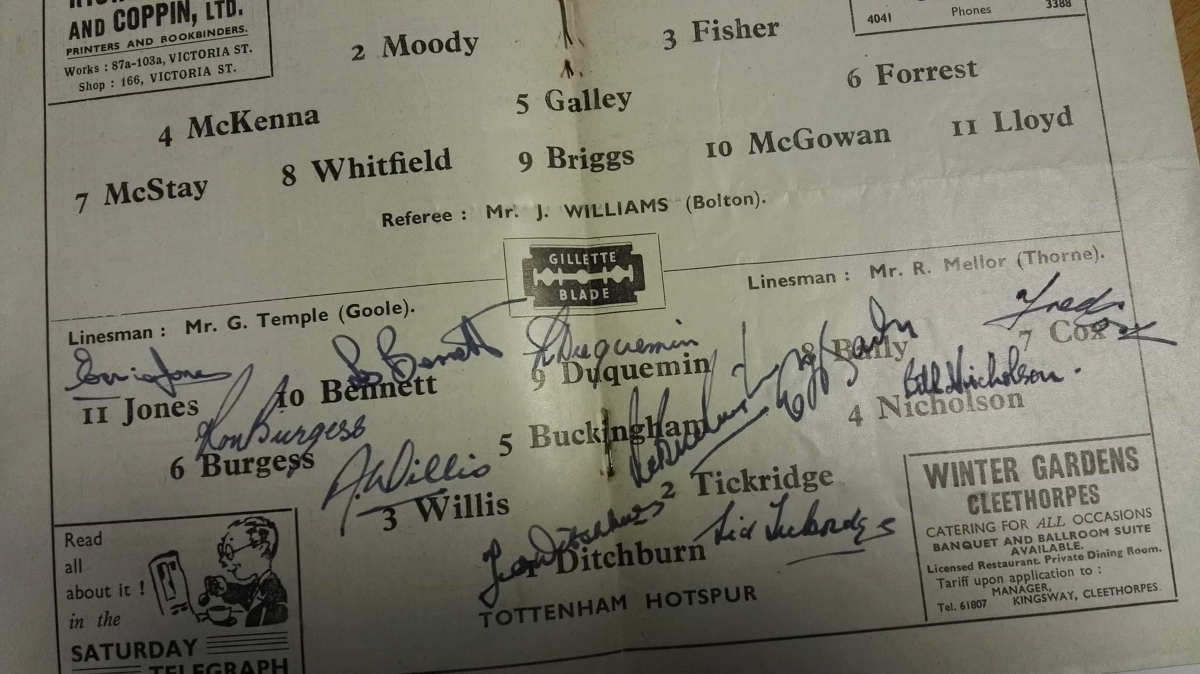 AND COPPIN, LTD.
PRINTERS AND BOOKBINDERS.
Works : 87a-103a, VICTORIA ST.
Shop : 166, VICTORIA ST.
4041 Phones 3388
2 Moody 3 Fisher
4 McKenna 5 Galley 6 Forrest
7 McStay 8 Whitfield 9 Briggs 10 McGowan 11 Lloyd
Referee : Mr. J. WILLIAMS (Bolton).
GILLETTE
BLADE
Linesman : Mr. G. Temple (Goole).
Linesman : Mr. R. Mellor (Thorne).
Jones Les Bennett L Duquemin Fred Cox
11 Jones 10 Bennett 9 Duquemin 8 Baily 7 Cox
Ron Burgess Bill Nicholson.
6 Burgess 5 Buckingham 4 Nicholson
A. Willis
3 Willis 2 Tickridge
Ditchburn Sid Tickridge
1 Ditchburn
TOTTENHAM HOTSPUR
Read
all
about it !
in the
SATURDAY
TELEGRAPH
WINTER GARDENS
CLEETHORPES
CATERING FOR ALL OCCASIONS
BANQUET AND BALLROOM SUITE
AVAILABLE.
Licensed Restaurant. Private Dining Room.
Tariff upon application to :
MANAGER,
Tel. 61807 KINGSWAY, CLEETHORPES